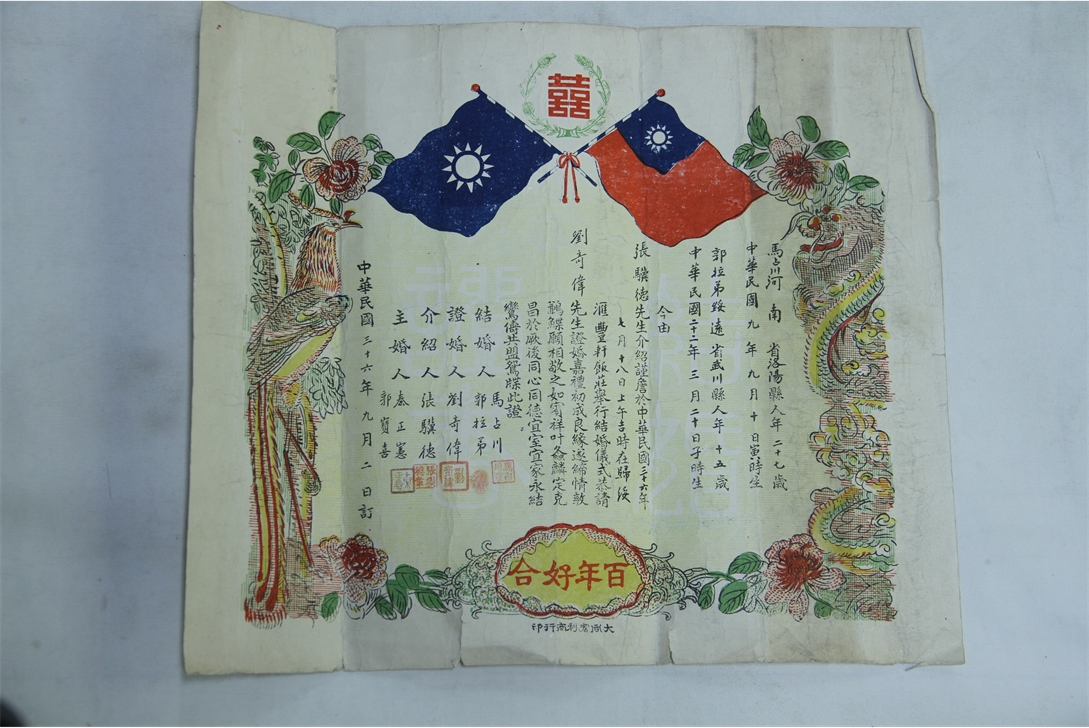 囍
馬占川河南省洛陽縣人年二十七歲
中華民國九年九月十日寅時生
郭拉弟綏遠省武川縣人年十五歲
中華民國二十二年三月二十日子時生
今由
張驥德先生介紹謹詹於中華民國三十六年
七月十八日上午吉時在歸綏
滙豐軒飯莊舉行結婚儀式恭請
劉奇偉先生證婚嘉禮初成良緣遂締情敦
鶼鰈願相敬之如賓祥叶螽麟定克
昌於厥後同心同德宜室宜家永結
鸞儔共盟鴛牒此證
結婚人馬占川
郭拉弟
證婚人劉奇偉
介紹人張驥德
主婚人秦正憲
郭寶喜
中華民國三十六年九月二日訂
百年好合
商行印